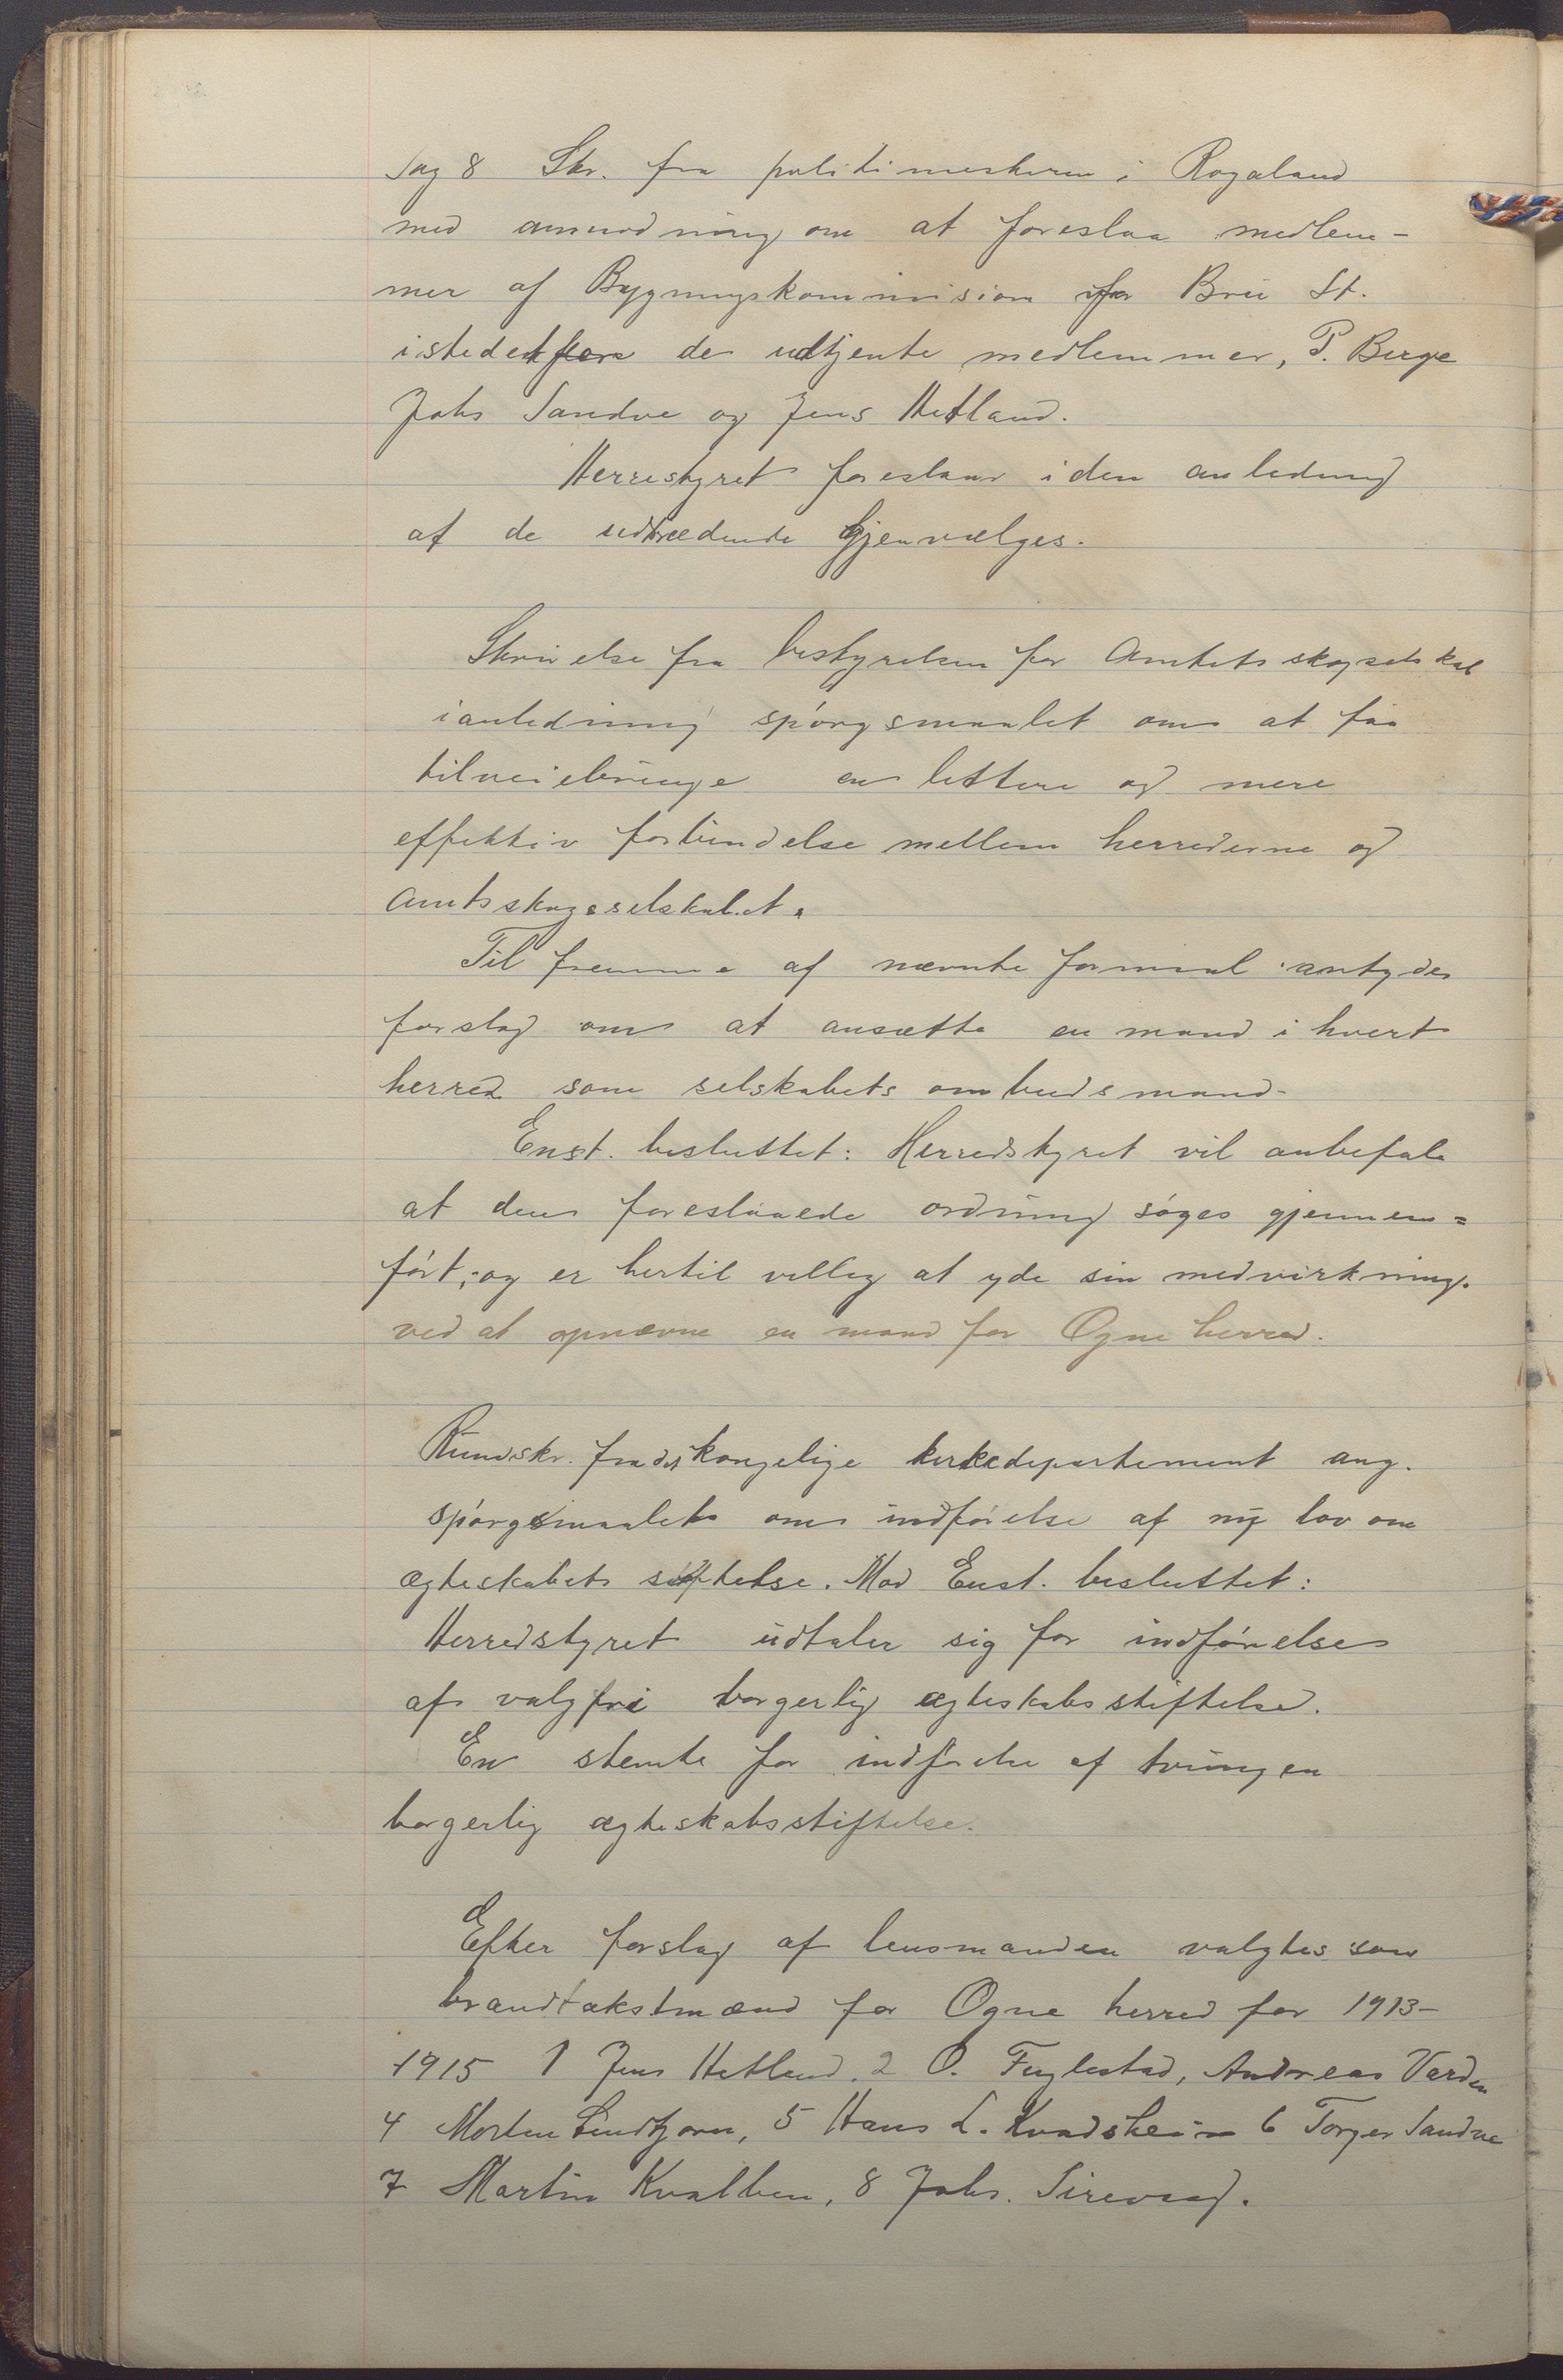 Sag 8 Skr. fra politimesteren i Rogaland
med anmodning om at foreslaa medlem-
mer af Bygningskommision for Bru St.
istedetfor de udtjente medlemmer, P. Berge
Johs Sandve og Jens Hetland.
Herrestyret foreslaar i den anledning
af de udtrædende gjenvælges.
Skrivelse fra bestyrelsen for Amtets skogselskab
ianledning spørgsmaalet om at faa
tilveiebringe en lettere og mere
effektiv forbindelse mellem herrederne og
Amtsskogselskabet.
Til fremme af nævnte formaal antydes
forslag om at ansætte en mand i hvert
herred som selskabets ombudsmand.
Enst. besluttet: Herredstyret vil anbefale
at den foreslaaede ordning søges gjennem=
ført, og er hertil villig at yde sin medvirkning.
ved at opnævne en mand for Ogne herred.
Rundskr. fra det kongelige kirkedepartement ang.
spørgsmaalet om indførelse af ny lov om
ægteskabets stiftelse. Mod Enst. besluttet:
Herredstyret udtaler sig for indførelse
af valgfri borgerlig ægteskabsstiftelse.
En stemte for indførelse af tvungen
borgerlig ægteskabsstiftelse.
Efter forslag af lensmanden valgtes som
brandtakstmænd for Ogne herred for 1913-
1915 1 Jens Hetland. 2 O. Fuglestad, Andreas Varden
4 Morten Lindtjørn, 5 Hans L. Kvadsheim 6 Torger Sandve
7 Martin Kvalben, 8 Johs. Sirevaag.